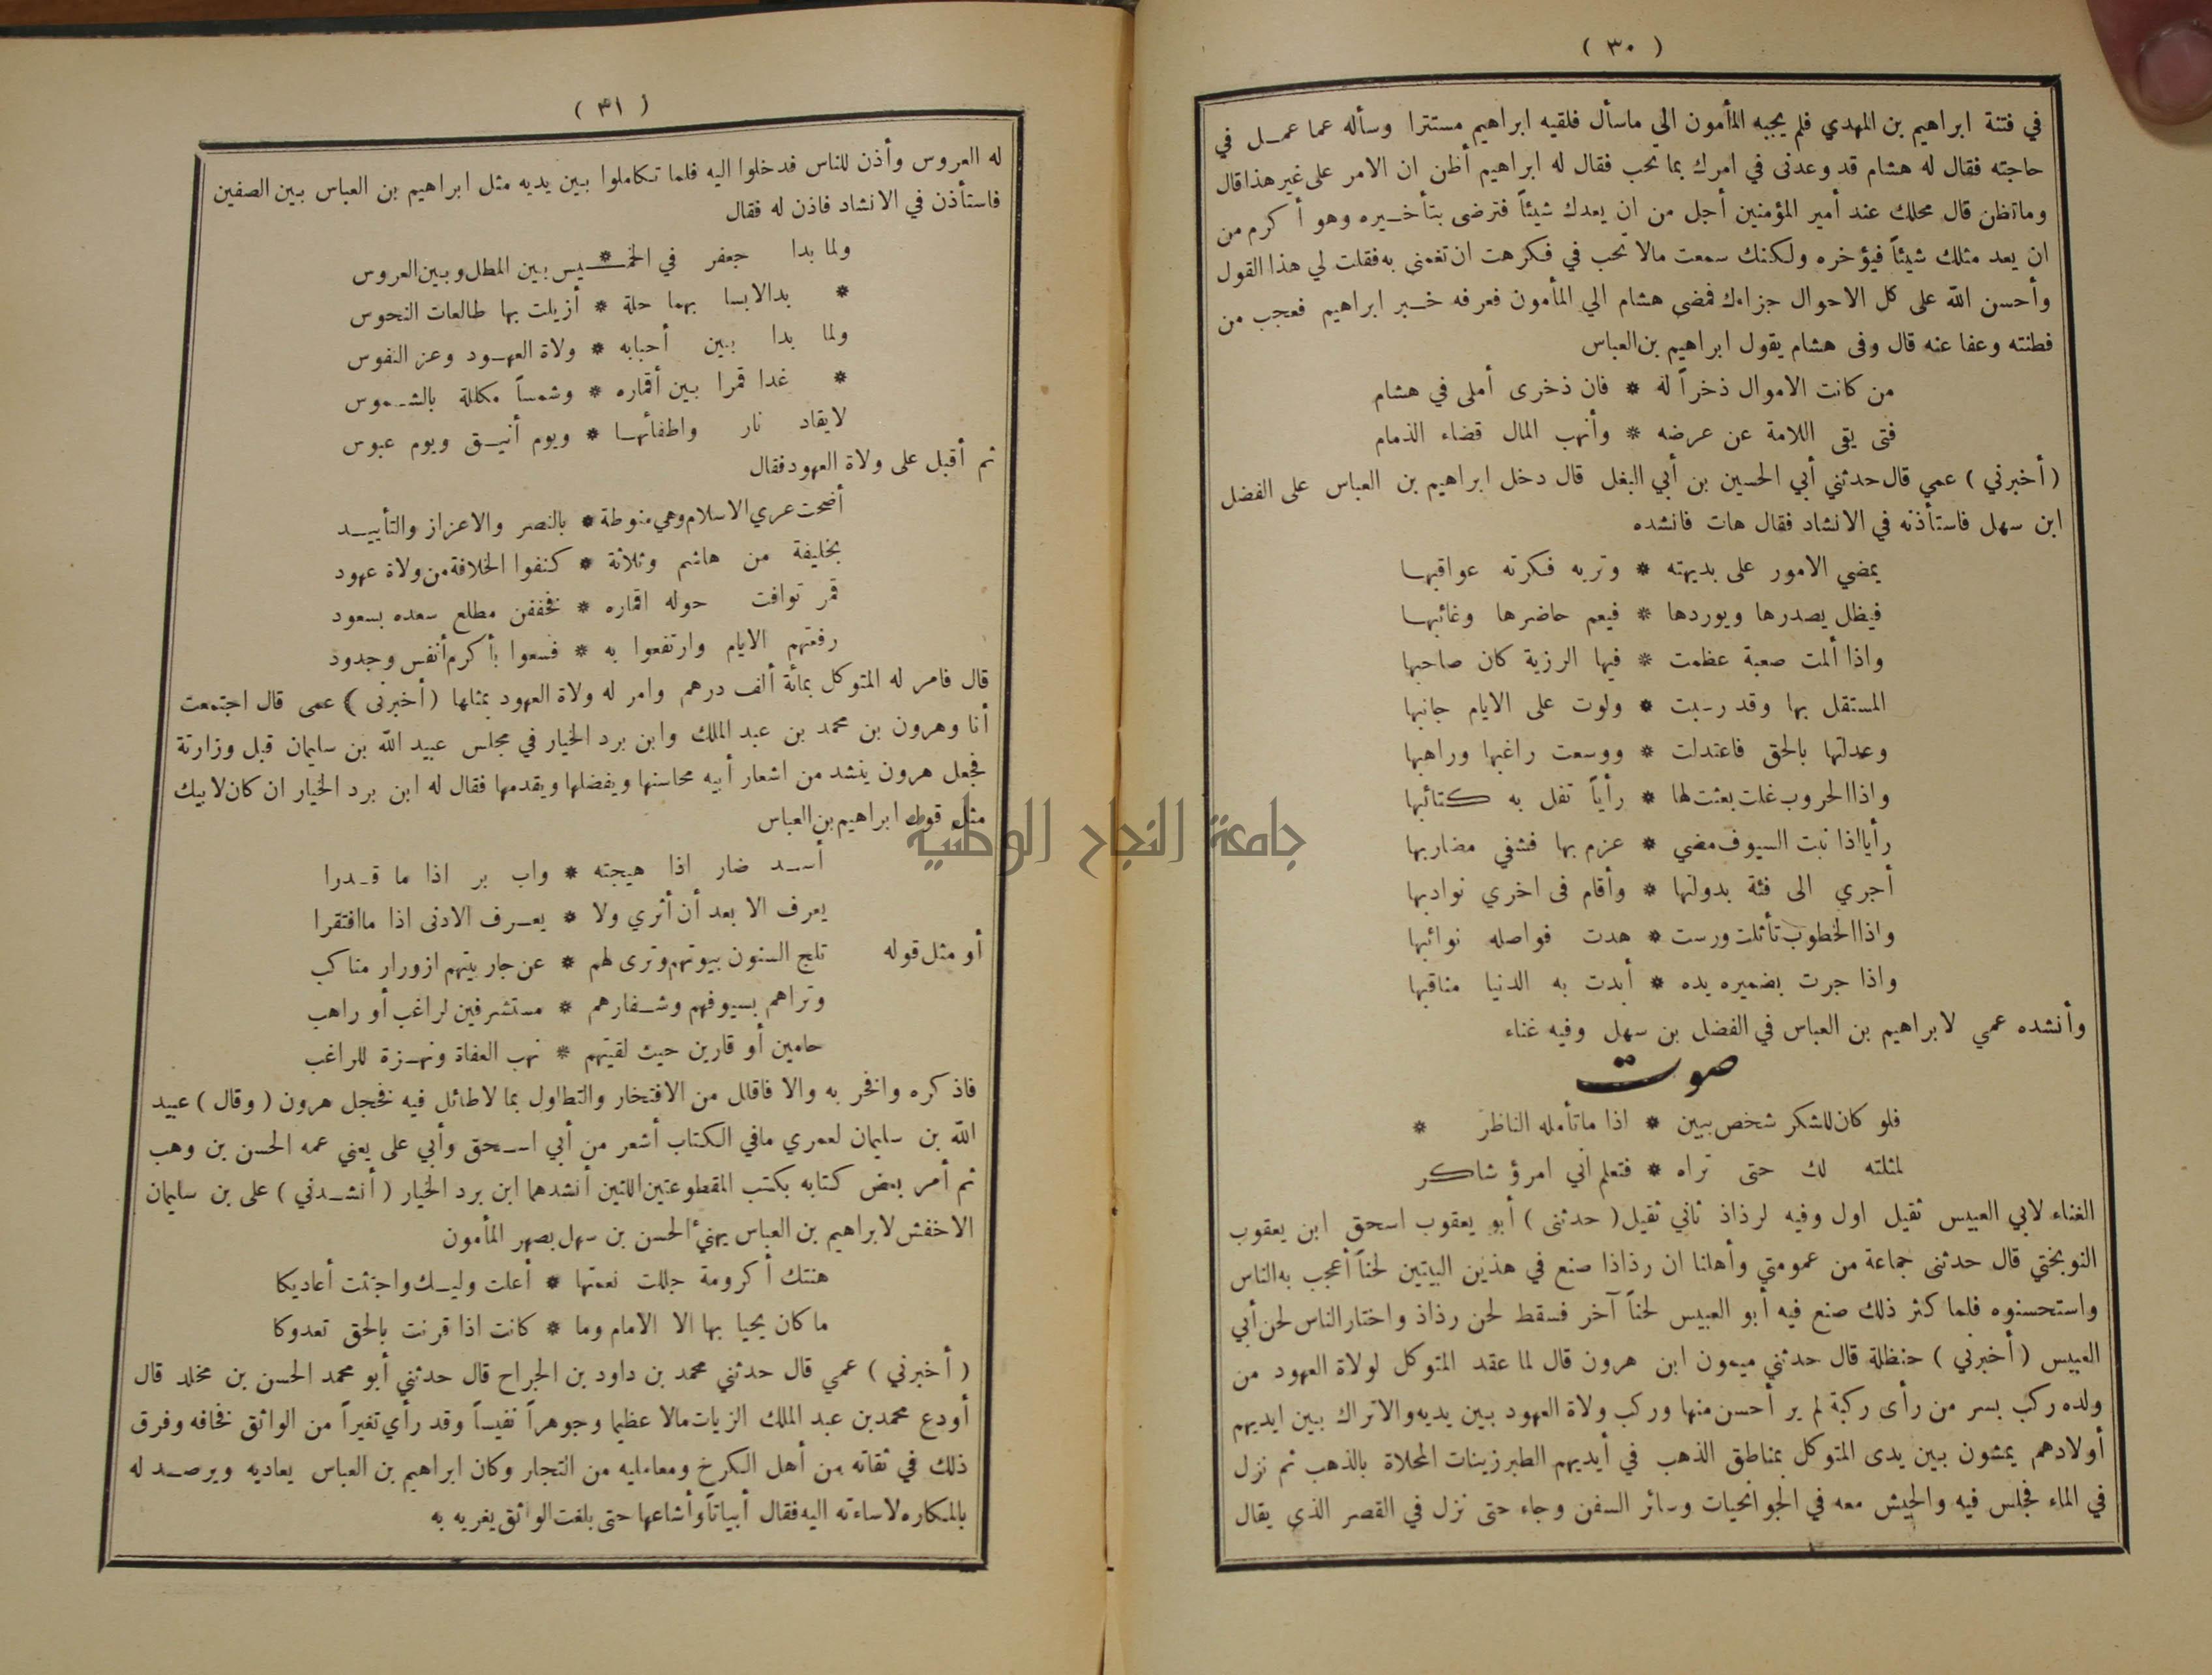 ( ٣٠ )
في فتنة ابراهيم بن المهدي فلم يجبه المأمون الي ماسأل فلقيه ابراهيم مستترا وسأله عما عمـل في
حاجته فقال له هشام قد وعدنى في امرك بما تحب فقال له ابراهيم أظن ان الامر على غير هذا قال
وماتظن قال محلك عند أمير المؤمنين أجل من ان يعدك شيئاً فترضى بتأخـيره وهو أكرم من
ان يعد مثلك شيئاً فيؤخره ولكنك سمعت مالا تحب في فكرهت ان تغمنى به فقلت لي هذا القول
وأحسن الله على كل الاحوال جزاءك فمضى هشام الي المأمون فعرفه خـبر ابراهيم فعجب من
فطنته وعفا عنه قال وفى هشام يقول ابراهيم بن العباس
من كانت الاموال ذخراً له * فان ذخرى أملى في هشام
فتى يقى اللامة عن عرضه * وأنهب المال قضاء الذمام
( أخبرني ) عمي قال حدثني أبي الحسين بن أبي البغل قال دخل ابراهيم بن العباس على الفضل
ابن سهل فاستأذنه في الانشاد فقال هات فانشده
يمضي الامور على بديهته * وتريه فكرته عواقبهـا
فيظل يصدرها ويوردها * فيعم حاضرها وغائبهـا
واذا ألمت صعبة عظمت * فيها الرزية كان صاحبها
المستقل بها وقد رسبت * ولوت على الايام جانبها
وعدلتها بالحق فاعتدلت * ووسعت راغبها وراهبها
واذا الحروب غلت بعثت لها * رأياً تفل به كتائبها
رأيا اذا نبت السيوف مضي * عزم بها فشفي مضاربها
أجري الى فئة بدولتها * وأقام فى اخري نوادبها
واذا الخطوب تأثلت ورست * هدت فواصله نوائبها
واذا جرت بضميره يده * أبدت به الدنيا مناقبها
وأنشده عمي لابراهيم بن العباس في الفضل بن سهل وفيه غناء
صوت
فلو كان للشكر شخص يبين * اذا ماتأمله الناظر *
لمثلته لك حتى تراه * فتعلم اني امرؤ شاكر
الغناء لابي العبيس ثقيل اول وفيه لرذاذ ثاني ثقيل ( حدثنى ) أبو يعقوب اسحق ابن يعقوب
النوبختي قال حدثنى جماعة من عمومتي وأهلنا ان رذاذا صنع في هذين البيتين لحناً أعجب به الناس
واستحسنوه فلما كثر ذلك صنع فيه أبو العبيس لحناً آخر فسقط لحن رذاذ واختار الناس لحن أبي
العبيس ( أخبرني ) حنظلة قال حدثني ميمون ابن هرون قال لما عقد المتوكل لولاة العهود من
ولده ركب بسر من رأى ركبة لم ير أحسن منها وركب ولاة العهود بين يديه والاتراك بين ايديهم
أولادهم يمشون بين يدى المتوكل بمناطق الذهب في أيديهم الطبرزينات المحلاة بالذهب ثم نزل
في الماء فجلس فيه والجيش معه في الجوانحيات وسائر السفن وجاء حتى نزل في القصر الذي يقال
( ٣١ )
له العروس وأذن للناس فدخلوا اليه فلما تكاملوا بين يديه مثل ابراهيم بن العباس بين الصفين
فاستأذن في الانشاد فاذن له فقال
ولما بدا جعفر في الخمـ * ـيس بين المطل وبين العروس
* بدا لابسا بهما حلة * أزيلت بها طالعات النحوس
ولما بدا بين أحبابه * ولاة العهـود وعز النفوس
* غدا قمرا بين أقماره * وشمساً مكللة بالشـموس
لايقاد نار واطفأئهـا * ويوم أنيـق ويوم عبوس
ثم أقبل على ولاة العهود فقال
أضحت عري الاسلام وهي منوطة * بالنصر والاعزاز والتأييـد
بخليفة من هاشم وثلاثة * كنفوا الخلافة من ولاة عهود
قمر توافت حوله اقماره * فخففن مطلع سعده بسعود
رفعتهم الايام وارتفعوا به * فسعوا بأكرم أنفس وجدود
قال فامر له المتوكل بمائة ألف درهم وامر له ولاة العهود بمثلها ( أخبرنى ) عمى قال اجتمعت
أنا وهرون بن محمد بن عبد الملك وابن برد الخيار في مجلس عبيد الله بن سليمان قبل وزارتة
فجعل هرون ينشد من اشعار أبيه محاسنها ويفضلها ويقدمها فقال له ابن برد الخيار ان كان لابيك
مثل قول ابراهيم بن العباس
أسـد ضار اذا هيجته * واب بر اذا ما قـدرا
يعرف الا بعد أن أثري ولا * يعـرف الادنى اذا ماافتقرا
أو مثل قوله تلج السنون بيوتهم وترى لهم * عن جار بيتهم ازورار مناكب
وتراهم بسيوفهم وشـفارهم * مستشرفين لراغب أو راهب
حامين أو قارين حيث لقيتهم * نهب العفاة ونهـزة للراغب
فاذكره وافخر به والا فاقلل من الافتخار والتطاول بما لاطائل فيه فخجل هرون ( وقال ) عبيد
الله بن سليمان لعمري مافي الكتاب أشعر من أبي اسـحق وأبي على يعني عمه الحسن بن وهب
ثم أمر بعض كتابه بكتب المقطوعتين اللتين أنشدهما ابن برد الخيار ( أنشـدني ) على بن سليمان
الاخفش لابراهيم بن العباس يهنئ الحسن بن سهل بصهر المأمون
هنتك أكرومة جللت نعمتها * أعلت وليـك واجتثت أعاديكا
ماكان يحيا بها الا الامام وما * كانت اذا قرنت بالحق تعدوكا
( أخبرني ) عمي قال حدثني محمد بن داود بن الجراح قال حدثني أبو محمد الحسن بن مخلد قال
أودع محمد بن عبد الملك الزيات مالا عظيما وجوهراً نفيساً وقد رأي تغيراً من الواثق فخافه وفرق
ذلك في ثقاته من أهل الكرخ ومعامليه من التجار وكان ابراهيم بن العباس يعاديه ويرصـد له
بالمكاره لاساءته اليه فقال أبياتاً وأشاعها حتى بلغت الواثق يغريه به
جامعة النجاح الوطنية